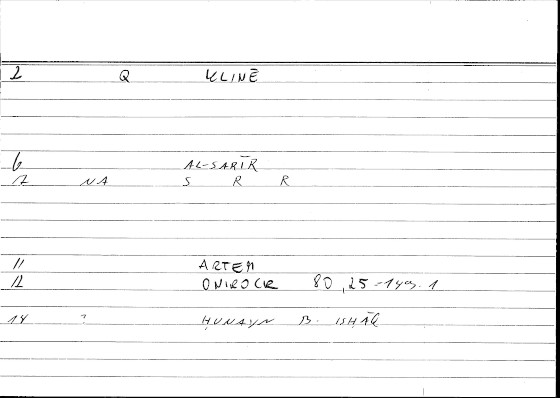 2 Q KLINĒ
6 AL-SARĪR
12 NA S R R
11 ARTEM
12 ONIROCR 80, 25 -
14 ? ḤUNAYN B. ISḤĀQ